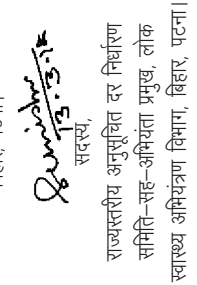 सदस्य,
राज्यस्तरीय अनुसूचित दर निर्धारण
समिति–सह–अभियंता प्रमुख, लोक
स्वास्थ्य अभियंत्रण विभाग, बिहार, पटना।